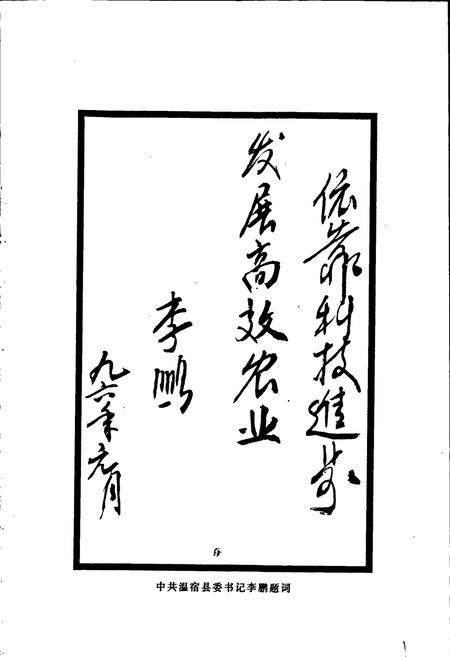 依靠科技進步
发展高效农业
李鹏
九六年元月
中共温宿县委书记李鹏题词